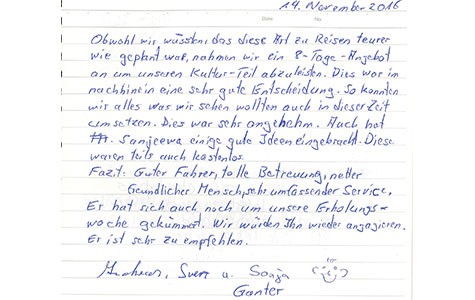 14. November 2016
Date
Obwohl wir wüssten, das diese Art zu Reisen teurer
wie geplant war, nahmen wir ein 8-Tage-Angebot
an um unseren Kultur-Teil abzuleisten. Dies war in
nachbinein eine sehr gute Entscheidung. So konnten
wir alles was wir sehen wollten auch in dieser Zeit
umsetzen. Dies war sehr angehehm. Auch hat
Hr. Sanjeewa einige gute Ideen eingebracht. Diese
waren teils auch kostenlos.
Fazit: Guter Fahrer, tolle Betreuung, netter
freundlicher Mensch, sehr umfassender Service.
Er hat sich auch noch um unsere Erholungs-
woche gekümmert. Wir würden Ihn wieder angagieren.
Er ist sehr zu empfehlen.
Sven u. Sonja
Ganter